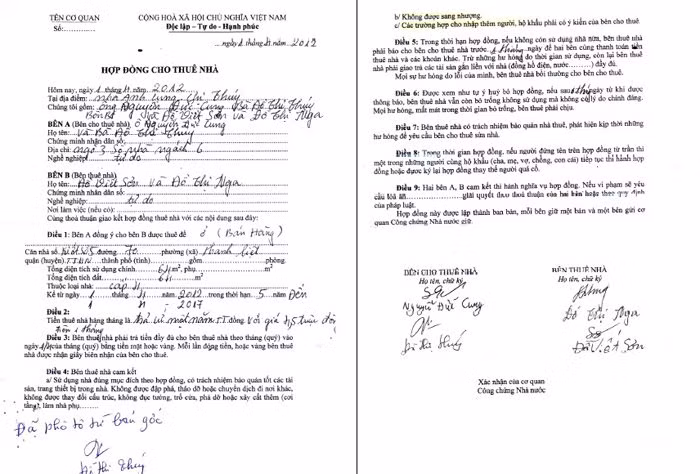 TÊN CƠ QUAN
CỘNG HOÀ XÃ HỘI CHỦ NGHĨA VIỆT NAM
Độc lập - Tự do - Hạnh phúc
ngày 1 tháng 11 năm 2012
HỢP ĐỒNG CHO THUÊ NHÀ
Hôm nay, ngày 1 tháng 11 năm 2012
Tại địa điểm: nhà Anh Cung Chị Thúy
Chúng tôi gồm: Ông Nguyễn Đức Cung Bà Đỗ Thị Thúy
Bên B Đỗ Viết Sơn Và Đỗ Thị Nga
BÊN A (Bên cho thuê) Nguyễn Đức Cung
Họ tên: Và Bà Đỗ Thị Thúy
Chứng minh nhân dân số:
Địa chỉ: ngõ 3 Số nhà ngách 6
Nghề nghiệp: tự do
BÊN B (Bên thuê nhà)
Họ tên: Đỗ Viết Sơn Và Đỗ Thị Nga
Chứng minh nhân dân số:
Nghề nghiệp: tự do
Nơi làm việc (nếu có):
Cùng thoả thuận giao kết hợp đồng thuê nhà với các nội dung sau đây:
Điều 1: Bên A đồng ý cho bên B được thuê để ở (Bán Hàng)
Căn nhà số đường 70 phường (xã) Thanh Liệt
quận (huyện) thành phố (tỉnh) gồm phòng.
Tổng diện tích sử dụng chính 64 m², phụ m²
Tổng diện tích đất 64 m²
Thuộc loại nhà: cấp 4
Kể từ ngày 1 tháng 11 năm 2012 trong thời hạn 5 năm Đến
1 11 2017
Điều 2:
Tiền thuê nhà hàng tháng là một năm T.T đồng. Với giá triệu
1 tháng
Điều 3: Bên thuê nhà phải trả tiền đầy đủ cho bên cho thuê nhà theo tháng (quý) vào
ngày của tháng (quý) bằng tiền mặt hoặc vàng. Mỗi lần đóng tiền, hoặc vàng bên thuê
nhà được nhận giấy biên nhận của bên cho thuê.
Điều 4: Bên thuê nhà cam kết
a/ Sử dụng nhà đúng mục đích theo hợp đồng, có trách nhiệm bảo quản tốt các tài
sản, trang thiết bị trong nhà. Không được đập phá, tháo dỡ hoặc chuyển dịch đi nơi khác,
không được thay đổi cấu trúc, không đục tường, trổ cửa, phá dỡ hoặc xây cất thêm (cơi
tầng), làm nhà phụ
Đã phô tô từ bản gốc
Đỗ Thị Thúy
b/ Không được sang nhượng.
c/ Các trường hợp cho nhập thêm người, hộ khẩu phải có ý kiến của bên cho thuê.
Điều 5: Trong thời hạn hợp đồng, nếu không còn sử dụng nhà nữa, bên thuê nhà
phải báo cho bên cho thuê nhà trước tháng ngày để hai bên cùng thanh toán tiền
thuê nhà và các khoản khác. Trừ những hư hỏng do thời gian sử dụng, còn lại bên thuê
nhà phải giao trả các tài sản gắn liền với nhà (đồng hồ điện, nước ) đầy đủ.
Mọi sự hư hỏng do lỗi của mình, bên thuê nhà bồi thường cho bên cho thuê.
Điều 6: Được xem như tự ý huỷ bỏ hợp đồng, nếu sau tháng ngày từ khi được
thông báo, bên thuê nhà vẫn còn bỏ trống không sử dụng mà không có lý do chính đáng.
Mọi hư hỏng, mất mát trong thời gian bỏ trống, bên thuê phải chịu.
Điều 7: Bên thuê nhà có trách nhiệm báo quản nhà thuê, phát hiện kịp thời những
hư hỏng để yêu cầu bên cho thuê sửa nhà.
Điều 8: Trong thời gian hợp đồng, nếu người đứng tên trên hợp đồng từ trần thì
một trong những người cùng hộ khẩu (cha, mẹ, vợ, chồng, con cái) tiếp tục thi hành hợp
đồng hoặc được ký lại hợp đồng thay thế người quá cố.
Điều 9: Hai bên A, B cam kết thi hành nghĩa vụ hợp đồng. Nếu vi phạm sẽ yêu
cầu toà án giải quyết theo thoả thuận của hai bên hoặc theo quy định
của pháp luật.
Hợp đồng này được lập thành ban bản, mỗi bên giữ một bản và một bên gửi cơ
quan Công chứng Nhà nước giữ.
BÊN CHO THUÊ NHÀ
Họ tên, chữ ký
Nguyễn Đức Cung
Đỗ Thị Thúy
BÊN THUÊ NHÀ
Họ tên, chữ ký
Đỗ Thị Nga
Đỗ Viết Sơn
Xác nhận của cơ quan
Công chứng Nhà nước